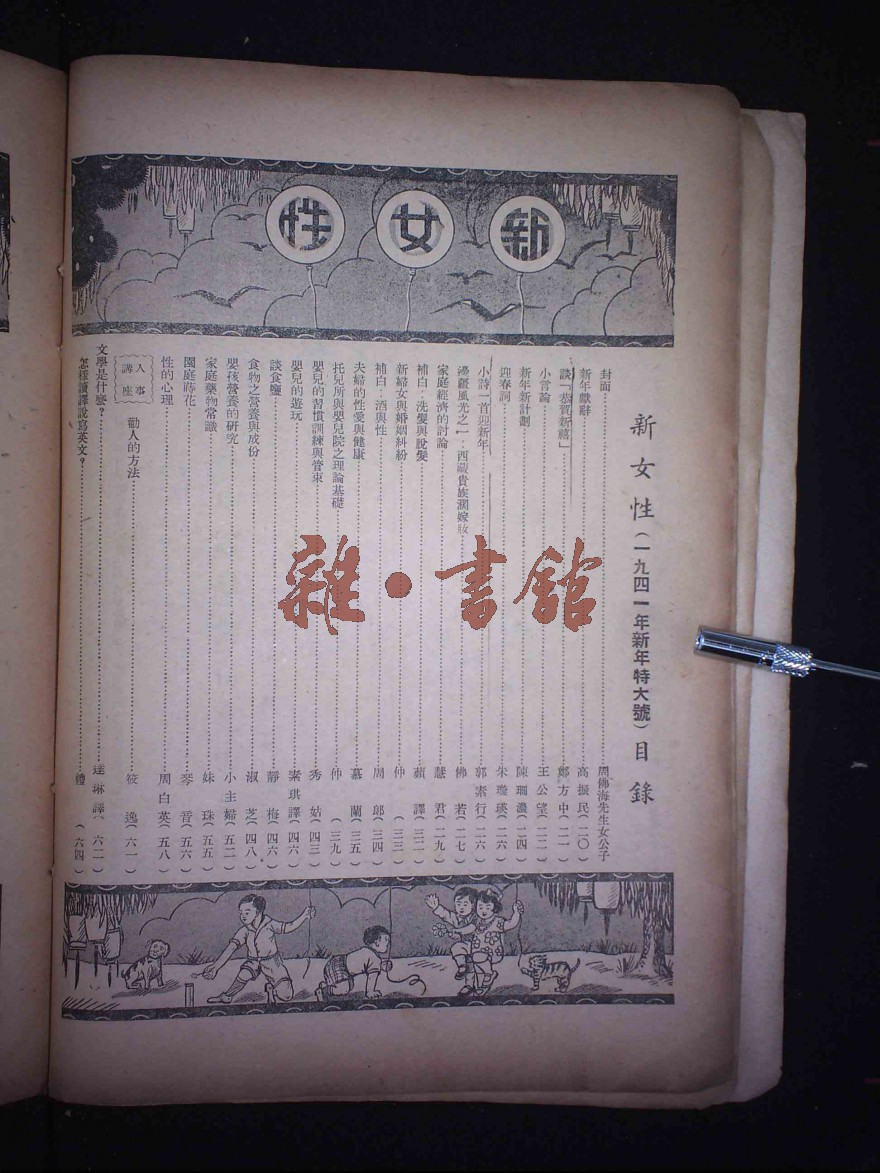 新女性
新女性(一九四一年新年特大號)目錄
封面……周佛海先生女公子
新年獻辭……高振民(二〇)
談「恭賀新禧」……鄭方中(二一)
小言論……王公望(二二)
新年新計劃……陳珊濃(二四)
迎春詞……朱璇瑛(二六)
小詩一首迎新年……郭素行(二六)
漫疆風光之一:西藏貴族濶嫁妝……佛若(二七)
家庭經濟的討論……慧君(二九)
補白:洗髮與脫髮……蘋譯(三二)
新婦女與婚姻糾紛……仲(三三)
補白:酒與性……周郎(三四)
夫婦的性愛與健康……慕蘭(三五)
托兒所與嬰兒院之理論基礎……仲(三九)
嬰兒的習慣訓練與管束……秀姑(四三)
嬰兒的遊玩……素琪譯(四六)
談食鹽……靜梅(四六)
食物之營養與成份……淑芝(四八)
嬰孩營養的研究……小主婦(五二)
家庭藥物常識……妹珠(五五)
園庭蒔花……琴音(五六)
性的心理……周白英(五八)
人事講座
勸人的方法……筱逸(六一)
文學是什麼?……達琳譯(六二)
怎樣讀譯說寫英文?……禮(六四)
雜·書館